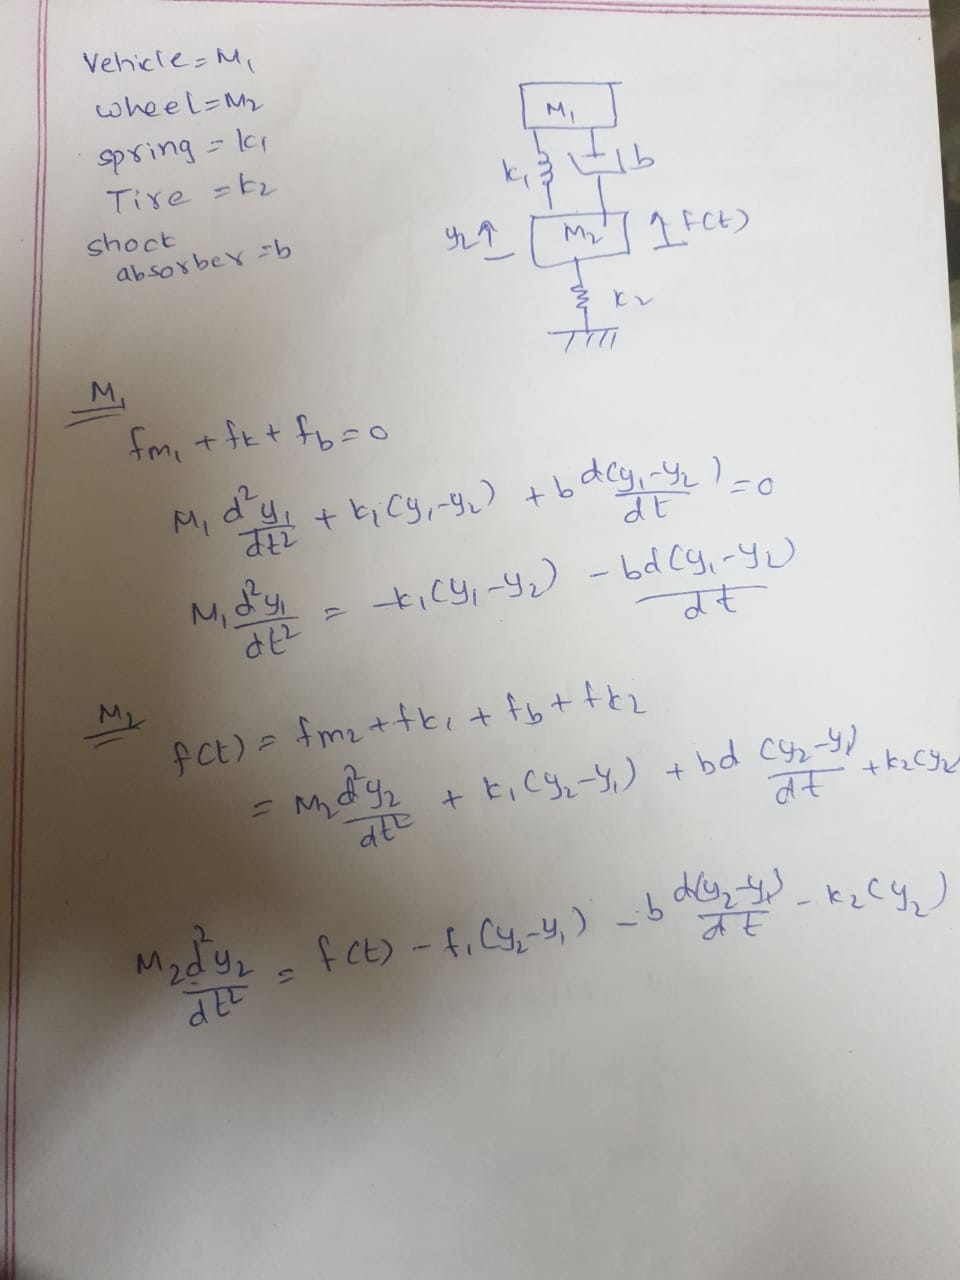 Vehicle = M₁
wheel = M₂
spring = k₁
Tire = k₂
shock
absorber = b
M₁
k₁ b
y₂↑ M₂ ↑ f(t)
k₂
M₁
fm₁ + fk + fb = 0
M₁ d²y₁/dt² + k₁(y₁-y₂) + b d(y₁-y₂)/dt = 0
M₁ d²y₁/dt² = -k₁(y₁-y₂) - bd(y₁-y₂)/dt
M₂
f(t) = fm₂ + fk₁ + fb + fk₂
= M₂ d²y₂/dt² + k₁(y₂-y₁) + bd (y₂-y₁)/dt + k₂(y₂
M₂d²y₂/dt² = f(t) - f₁(y₂-y₁) - b d(y₂-y₁)/dt - k₂(y₂)